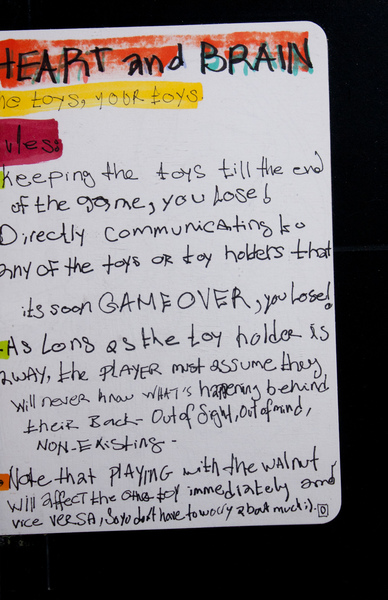 HEART and BRAIN
toys, your toys.
ules:
keeping the toys till the end
of the game, you lose!
Directly communicating to
any of the toys or toy holders that
its soon GAME OVER, you Lose!
As Long as the toy holder is
away, the PLAYER must assume they
will never know WHAT'S happening behind
their Back- Out of Sight, Out of mind,
NON-EXisting-
Note that PLAYING with the walnut
will affect the other toy immediately and
vice VERSA, So you don't have to worry about much :).